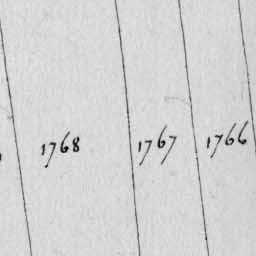 1768 1767 1766